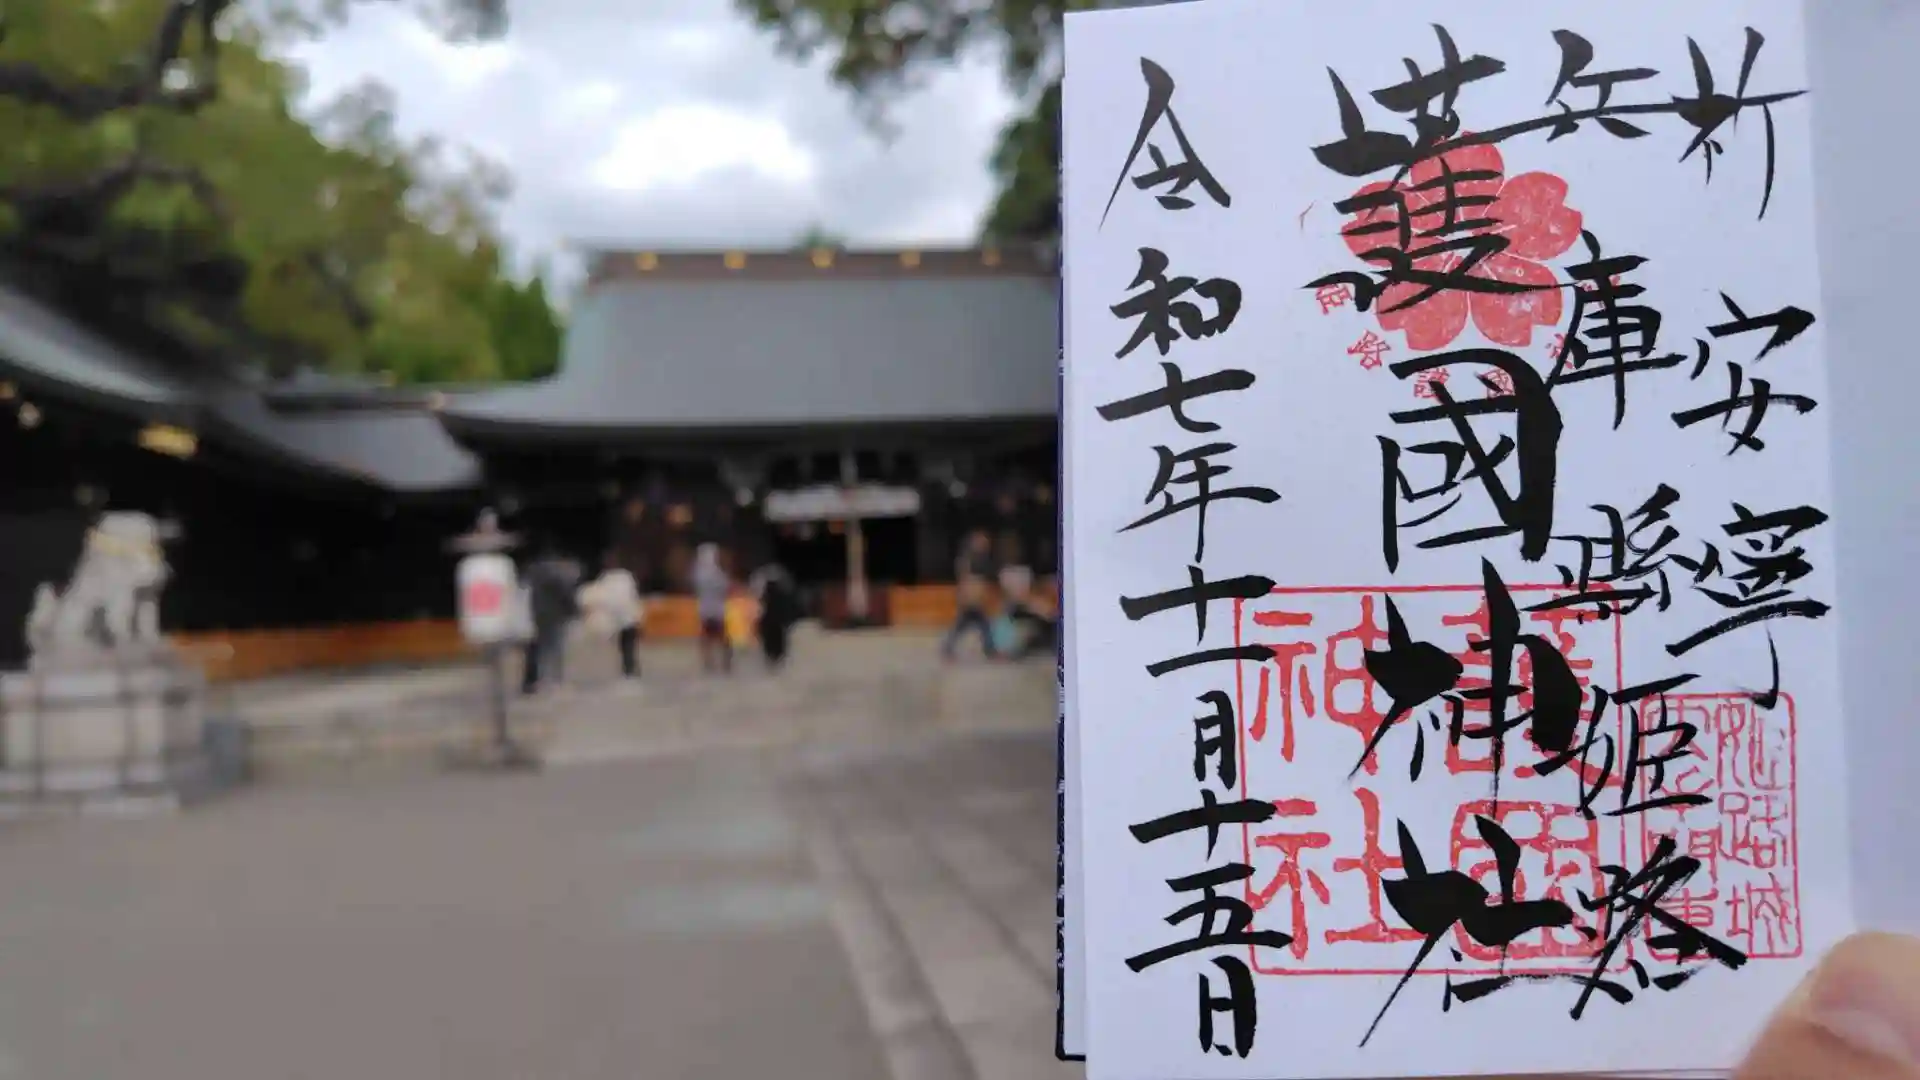 祈 安寧
兵庫縣姫路
護國神社
令和七年十一月十五日
護國
神社
姫路城